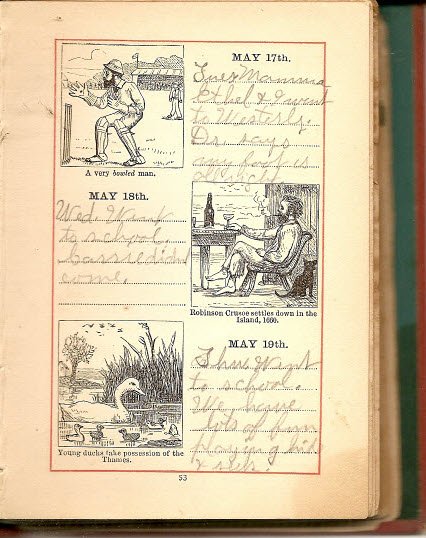 MAY 17th.
Tues Mamma
Ethel & I went
to Westerly.
Dr. says
my foot is
all right
A very bowled man.
MAY 18th.
Wed. Went
to school.
Cassie didn
come.
Robinson Crusoe settles down in the
Island, 1660.
MAY 19th.
Thur Went
to school.
We have
lots of fun
playing hide
& seek.
Young ducks take possession of the
Thames.
53